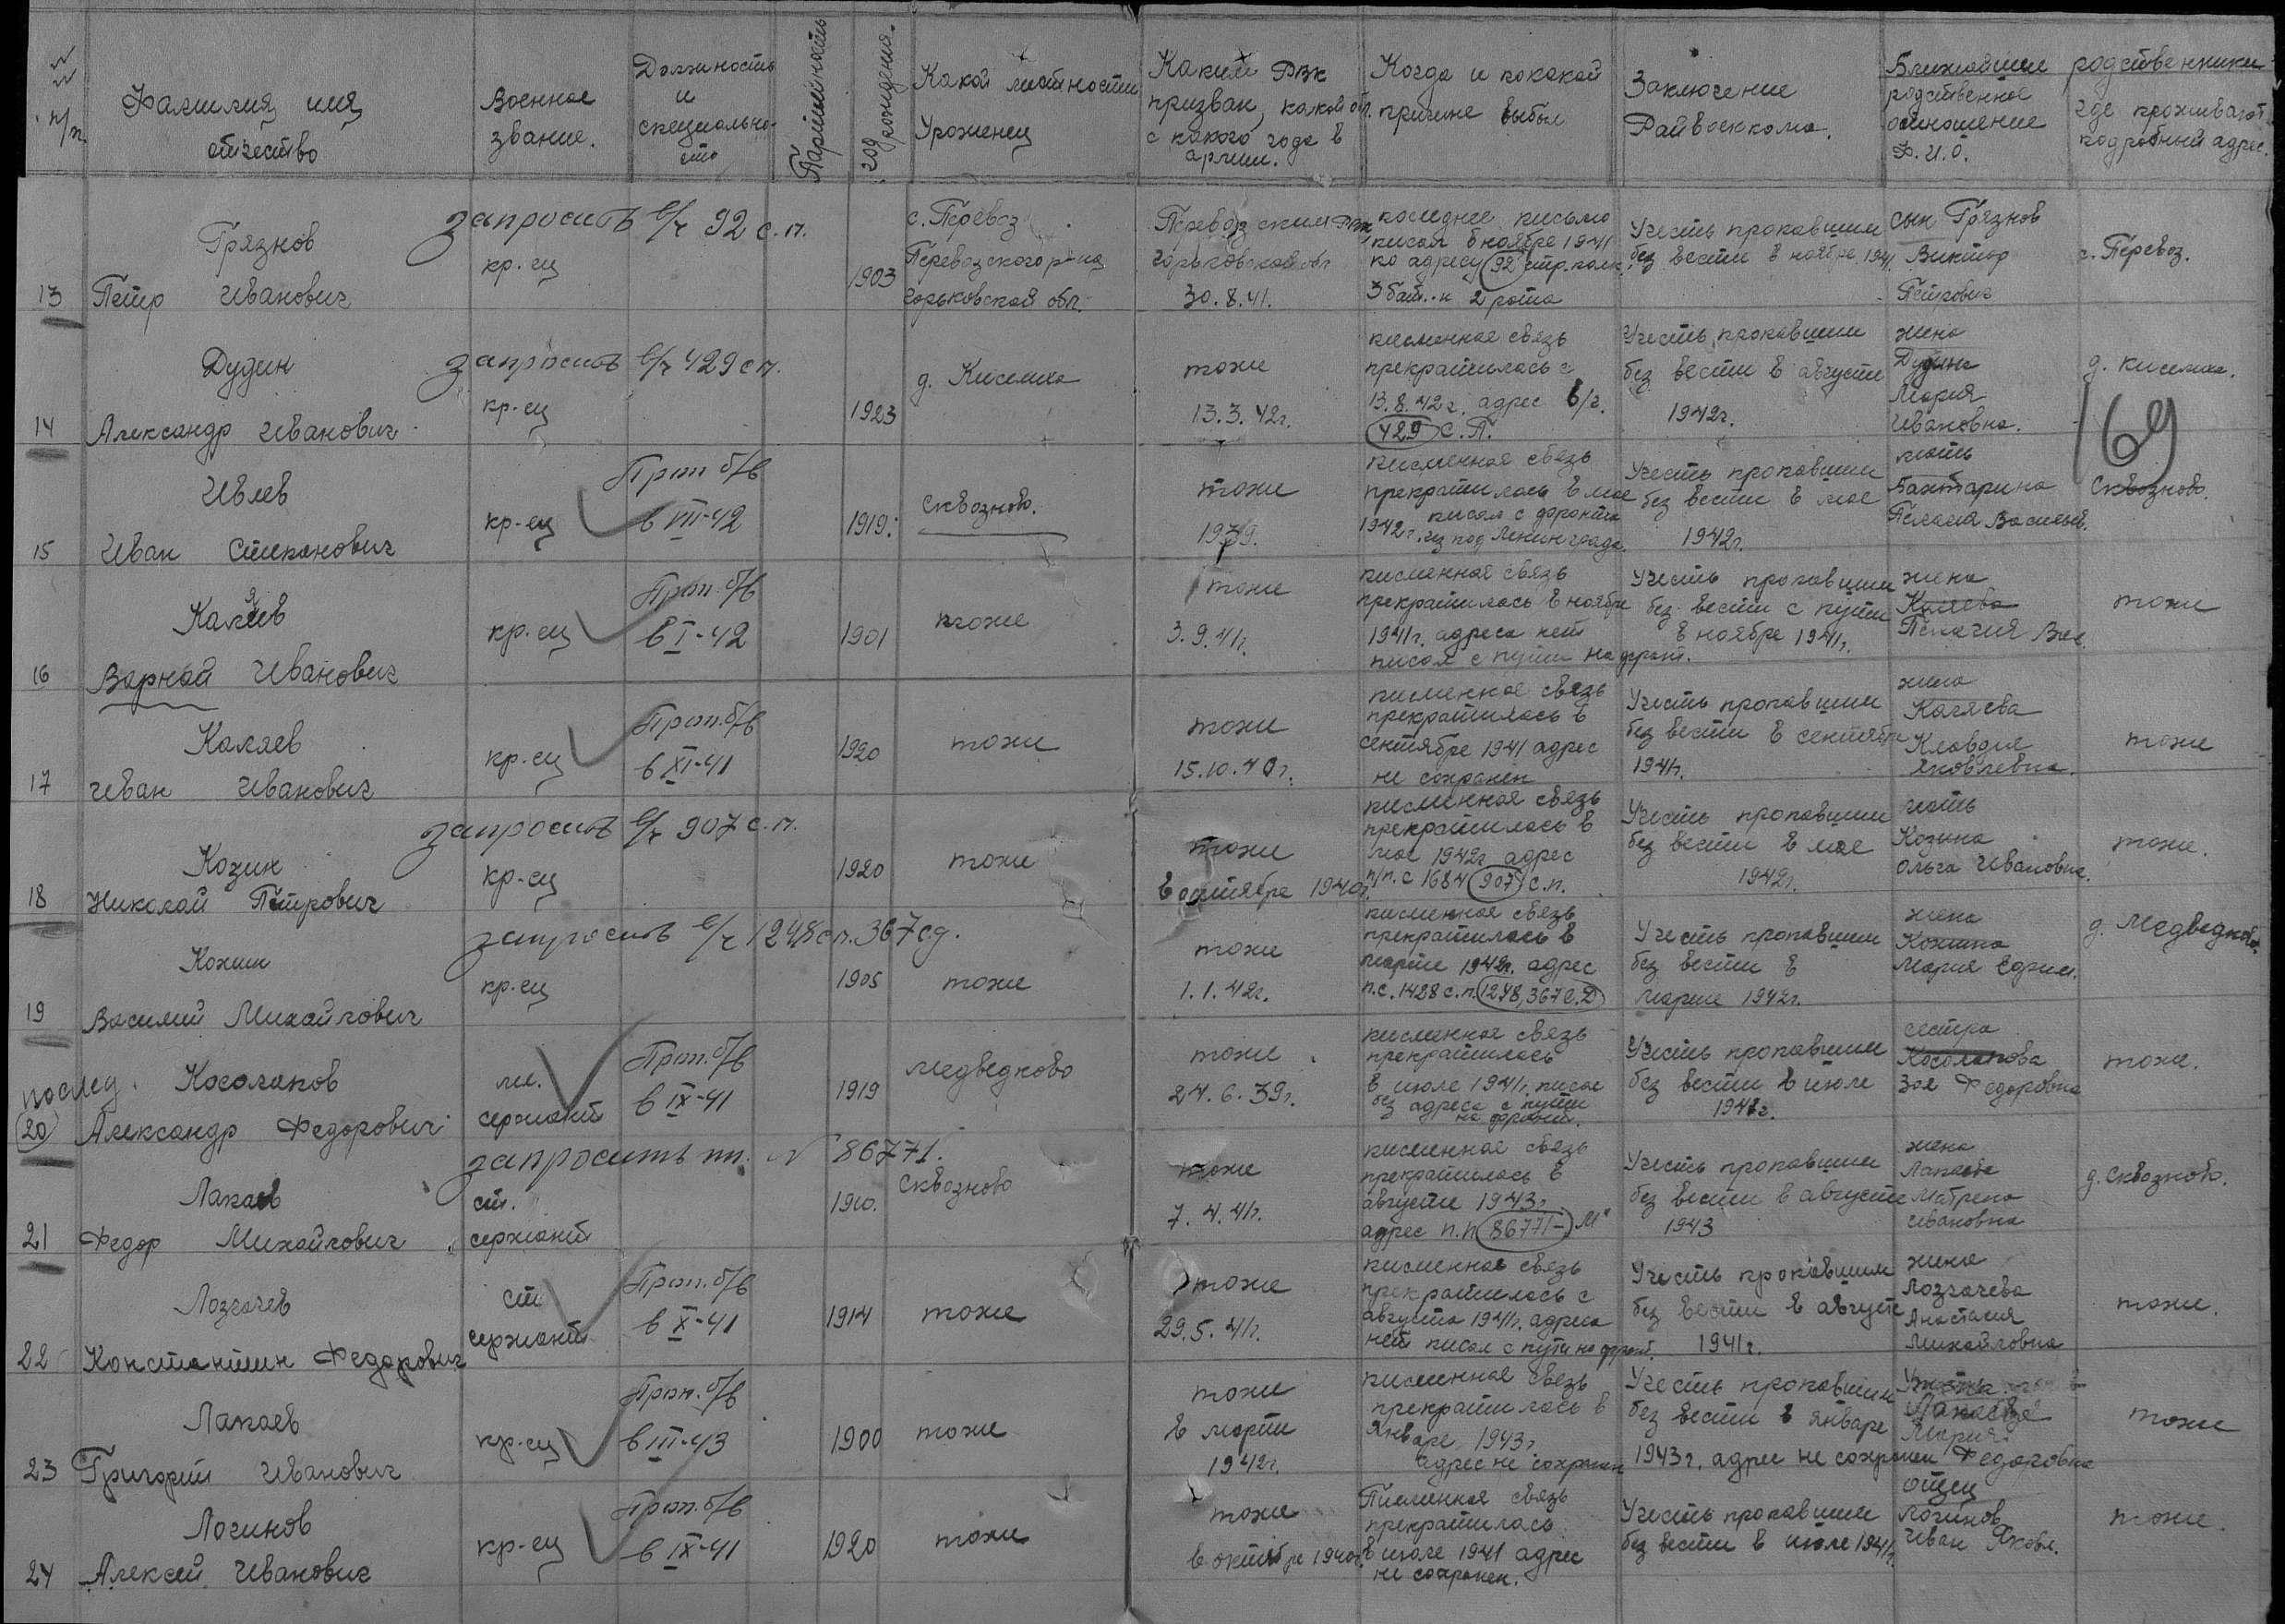 №№ п/п.
Фамилия имя отчество
Военное звание.
Должность и специально-сть
Партийность
год рождения.
Какой местности Уроженец
Каким РВК призван, какой обл. с какого года в армии.
Когда и по какой причине выбыл
Заключение Райвоенкома.
Ближайшие родственники
родственное отношение Ф.И.О.
где проживают подробный адрес.
запросить в/ч 92 с.п.
13 Грязнов Петр Иванович
кр-ец
1903
с. Перевоз Перевозского р-на Горьковской обл.
Перевозским РВК Горьковской обл 30.8.41.
последнее письмо писал 6 ноября 1941 по адресу 92 стр. полк, 3 бат-н 2 рота
Учесть пропавшим без вести в ноябре 1941.
сын Грязнов Виктор Петрович
с. Перевоз.
запросить в/ч 429 сп.
14 Дудин Александр Иванович
кр-ец
1923
д. Киселиха
тоже 13.3.42г.
письменная связь прекратилась с 13.8.42г. адрес в/ч. 429 С.П.
Учесть пропавшим без вести в августе 1942г.
жена Дудина Мария Ивановна.
д. Киселиха.
169
15 Ивлев Иван Степанович
кр-ец
Проп б/в в VIII-42
1919.
Сквозново.
тоже 1939.
письменная связь прекратилась в мае 1942г. писал с фронта из под Ленинграда.
Учесть пропавшим без вести в мае 1942г.
мать Бахтарина Пелагея Васильев.
Сквозново.
16 Каляев Варнай Иванович
кр-ец
Проп. б/в в I-42
1901
тоже
тоже 3.9.41г.
письменная связь прекратилась в ноябре 1941г. адреса нет писал с пути на фронт.
Учесть пропавшим без вести с пути в ноябре 1941г.
жена Каляева Пелагия Вас.
тоже
17 Каляев Иван Иванович
кр-ец
Проп. б/в в XI-41
1920
тоже
тоже 15.10.40г.
письменная связь прекратилась в сентябре 1941 адрес не сохранен
Учесть пропавшим без вести в сентябре 1941г.
жена Каляева Клавдия Яковлевна.
тоже
запросить в/ч 907 с.п.
18 Козин Николай Петрович
кр-ец
1920
тоже
тоже в октябре 1940г.
письменная связь прекратилась в мае 1942г адрес п/п.с 1684 907 с.п.
Учесть пропавшим без вести в мае 1942г.
мать Козина Ольга Ивановна.
тоже.
запросить в/ч 1248 сп. 367 сд.
19 Кокин Василий Михайлович
кр-ец
1905
тоже
тоже 1.1.42г.
письменная связь прекратилась в марте 1942г. адрес п.с. 1428 с.п. 1248, 367 С.Д
Учесть пропавшим без вести в марте 1942г.
жена Мария Ефим.
д. Медведково.
послед.
20 Косолапов Александр Федорович
мл. сержант
Проп. б/в в IX-41
1919
Медведково
тоже 24.6.39г.
письменная связь прекратилась в июле 1941г. писал без адреса с пути на фронт.
Учесть пропавшим без вести в июле 1941г.
сестра Косолапова Зоя Федоровна
тоже.
запросить пп. № 86771.
21 Лапаев Федор Михайлович
ст. сержант
1910.
Сквозново
тоже 7.4.41г.
письменная связь прекратилась в августе 1943г. адрес п.п 86771-"М"
Учесть пропавшим без вести в августе 1943
жена Лапаева Матрена Ивановна
д. Сквозново.
22 Лозгачев Константин Федорович
ст сержант
Проп. б/в в X-41
1914
тоже
тоже 29.5.41г.
письменная связь прекратилась с августа 1941г. адреса нет писал с пути на фронт.
Учесть пропавшим без вести в августе 1941г.
жена Лозгачева Анастасия Михайловна
тоже.
23 Лапаев Григорий Иванович
кр-ец
Проп. б/в в III-43
1900
тоже
тоже в марте 1942г.
письменная связь прекратилась в январе 1943г. адрес не сохранен
Учесть пропавшим без вести в январе 1943г. адрес не сохранен
Лапаева Мария Федоровна
тоже
24 Логинов Алексей Иванович
кр-ец
Проп. б/в в IX-41
1920
тоже
тоже в октябре 1940г.
Письменная связь прекратилась в июле 1941 адрес не сохранен.
Учесть пропавшим без вести в июле 1941г.
отец Логинов Иван Яковл.
тоже.